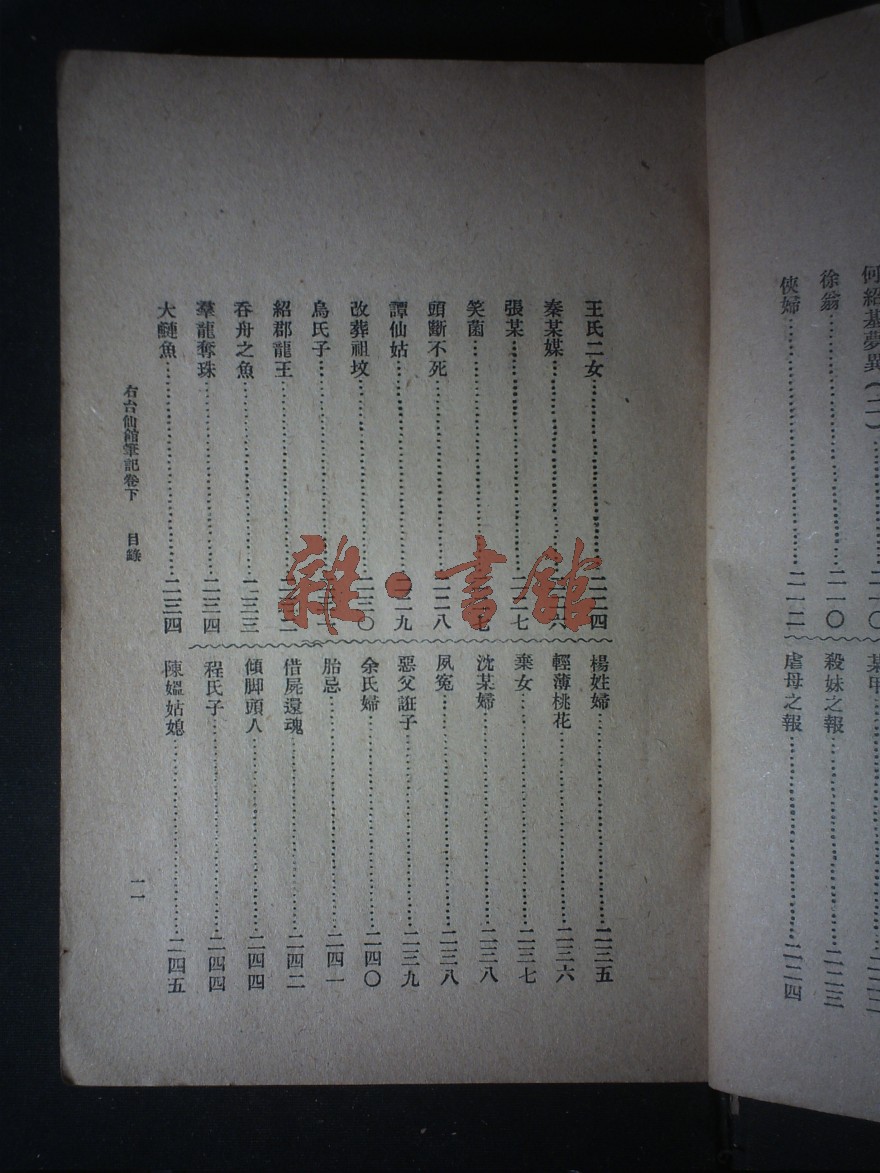 何紹基夢異(二)
徐翁……二一〇
俠婦……二一二
殺妹之報……二二三
虐母之報……二二四
王氏二女……二二四
秦某媒……六
張某……二二七
笑菌……七
頭斷不死……二二八
譚仙姑……二二九
改葬祖坟……二三〇
烏氏子……
紹郡龍王……
吞舟之魚……二三三
羣龍奪珠……二三四
大鰱魚……二三四
楊姓婦……二三五
輕薄桃花……二三六
棄女……二三七
沈某婦……二三八
夙冤……二三八
惡父誑子……二三九
余氏婦……二四〇
胎忌……二四一
借屍還魂……二四二
傾脚頭人……二四四
程氏子……二四四
陳嫗姑媳……二四五
右台仙館筆記卷下 目錄
雜·書館